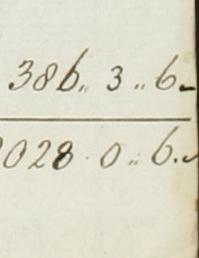 386,, 3 ,, 6.
2028 . 0 ,, 6.